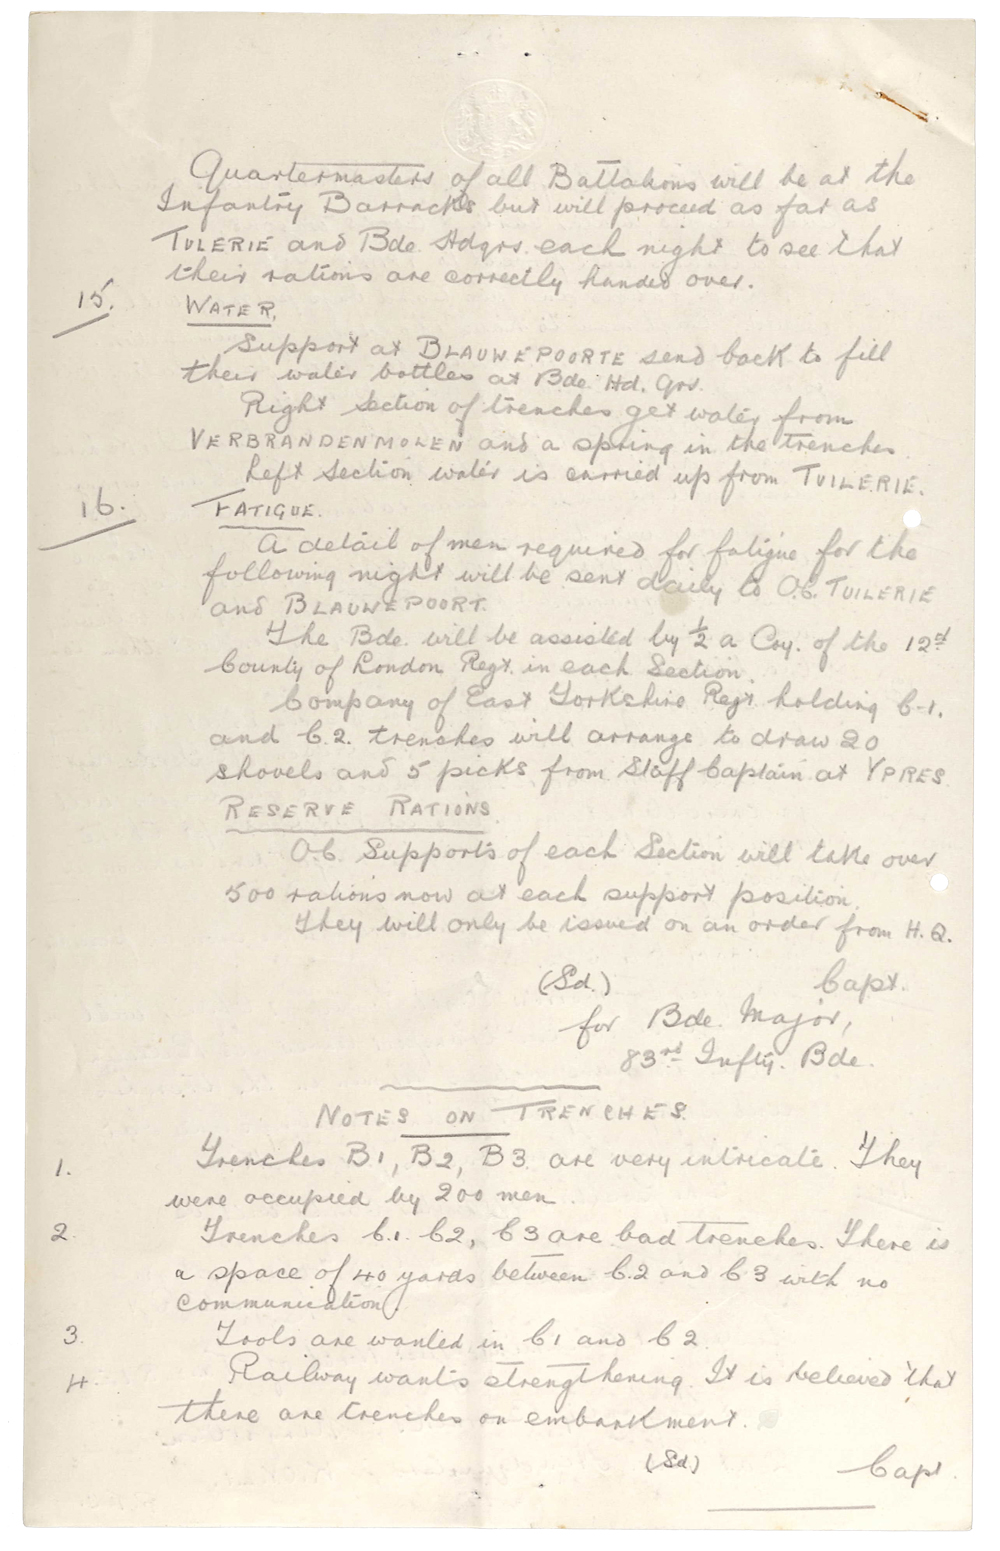 Quartermasters of all Battalions will be at the
Infantry Barracks but will proceed as far as
TULERIE and Bde. Hdqrs. each night to see that
their rations are correctly handed over.
15. WATER.
Support at BLAUWEPOORTE send back to fill
their water bottles at Bde. Hd. Qrs.
Right Section of trenches get water from
VERBRANDENMOLEN and a spring in the trenches.
Left Section water is carried up from TUILERIE.
16. FATIGUE.
A detail of men required for fatigue for the
following night will be sent daily to O.C. TUILERIE
and BLAUWEPOORT.
The Bde. will be assisted by ½ a Coy. of the 12th
County of London Regt. in each Section.
Company of East Yorkshire Regt. holding C-1.
and C.2. trenches will arrange to draw 20
shovels and 5 picks from Staff Captain at YPRES
RESERVE RATIONS.
O.C. Supports of each Section will take over
500 rations now at each support position.
They will only be issued on an order from H.Q.
(Sd.) Capt.
for Bde. Major,
83rd Infty. Bde.
NOTES ON TRENCHES.
1. Trenches B1, B2, B3 are very intricate. They
were occupied by 200 men.
2. Trenches C.1. C2, C3 are bad trenches. There is
a space of 40 yards between C.2 and C3 with no
communication.
3. Tools are wanted in C1 and C2.
4. Railway wants strengthening. It is believed that
there are trenches on embankment.
(Sd) Capt.